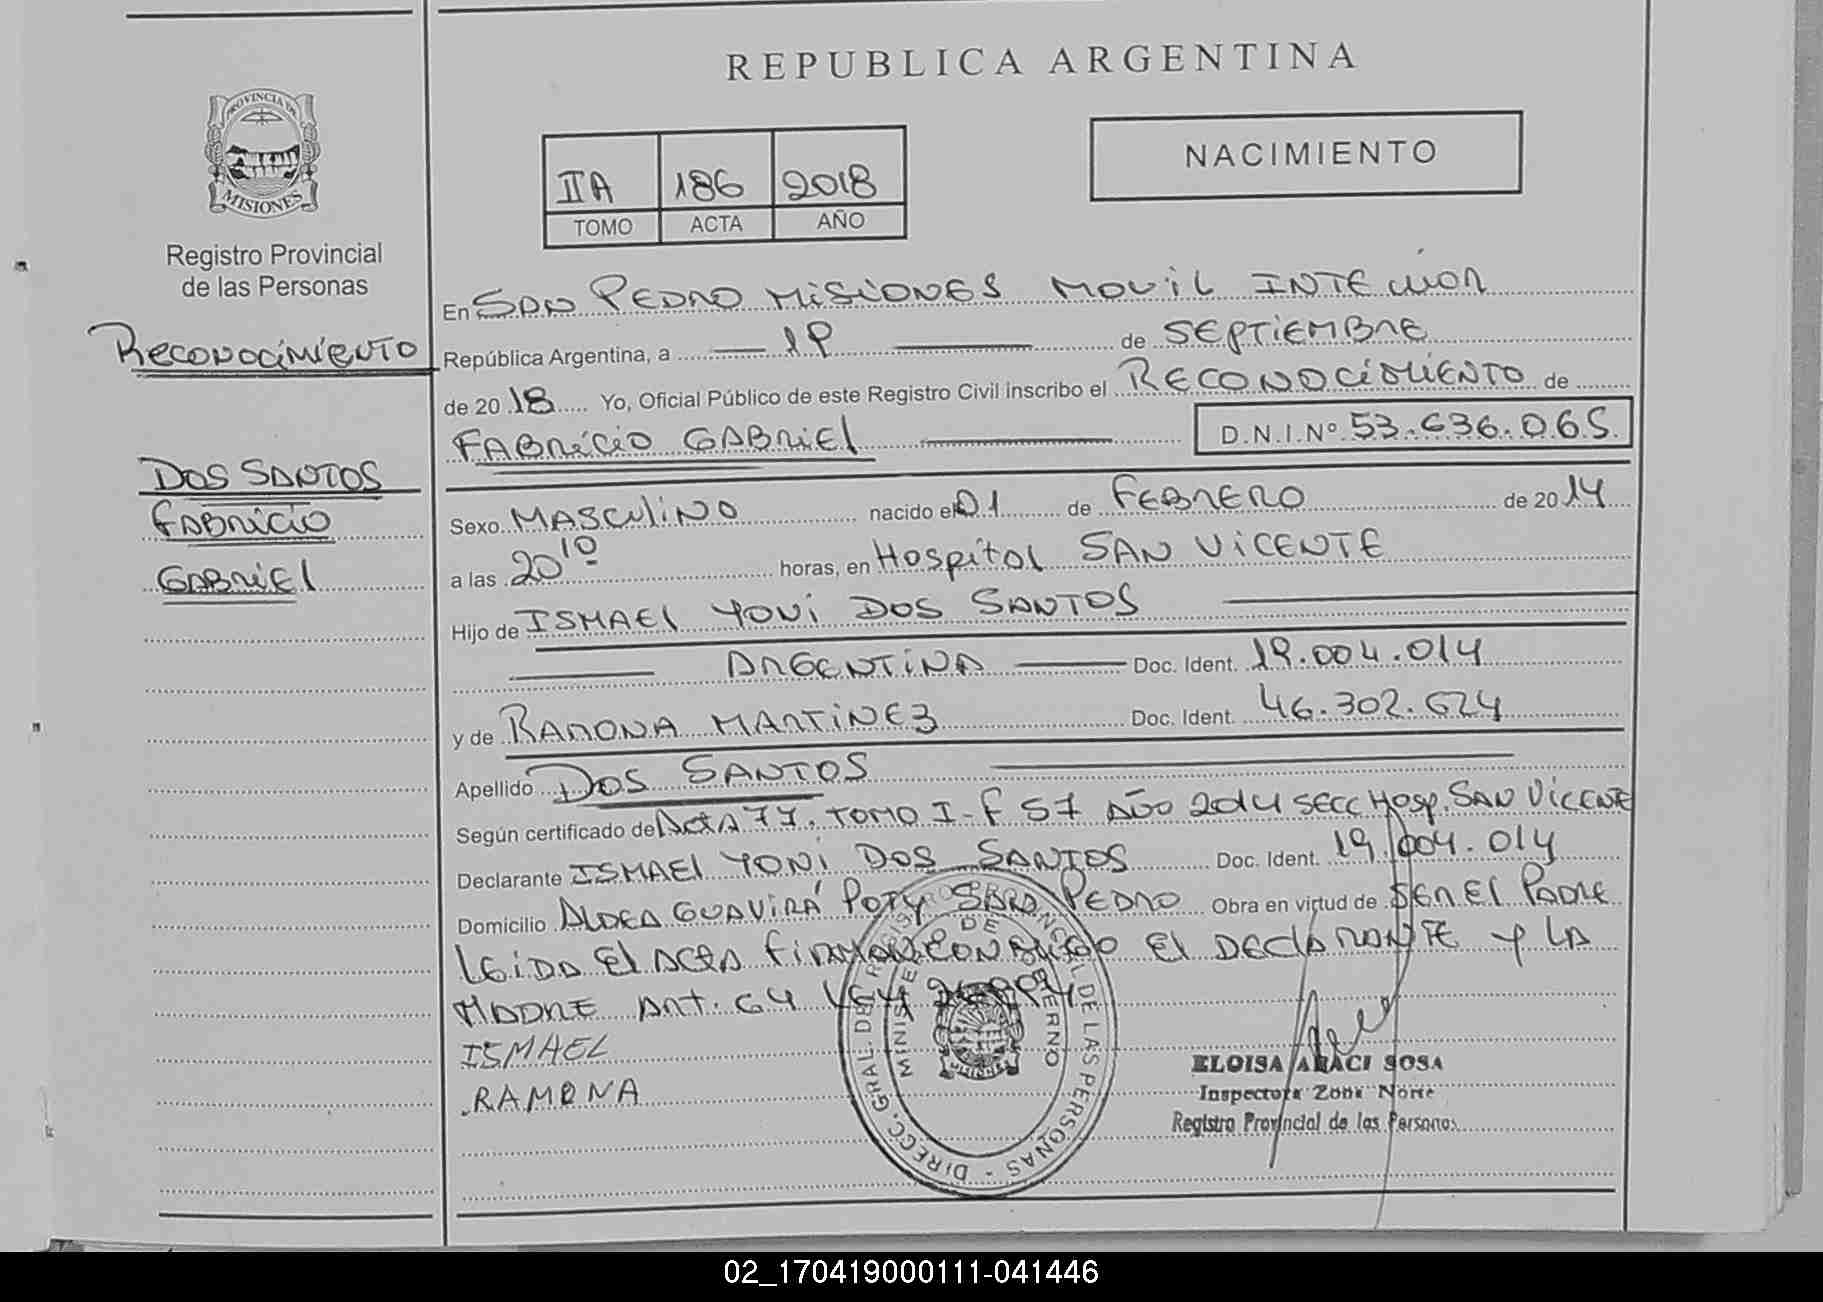 REPUBLICA ARGENTINA
PROVINCIA DE
MISIONES
Registro Provincial
de las Personas
IIA 186 2018
TOMO ACTA AÑO
NACIMIENTO
RECONOCIMIENTO
DOS SANTOS
FABRICIO
GABRIEL
En SAN PEDRO MISIONES MOVIL INTERIOR
República Argentina, a 19 de SEPTIEMBRE
de 20 18 Yo, Oficial Público de este Registro Civil inscribo el RECONOCIMIENTO de
FABRICIO GABRIEL D.N.I.Nº 53.636.065
Sexo MASCULINO nacido el 01 de FEBRERO de 2014
a las 20 10 horas, en Hospital SAN VICENTE
Hijo de ISMAEL YONI DOS SANTOS
ARGENTINA Doc. Ident. 19.004.014
y de RAMONA MARTINEZ Doc. Ident. 46.302.624
Apellido DOS SANTOS
Según certificado de Acta 77. TOMO I - F 57 AÑO 2014 SECC Hosp. SAN VICENTE
Declarante ISMAEL YONI DOS SANTOS Doc. Ident. 19.004.014
Domicilio ALDEA GUAVIRÁ POTY SAN PEDRO Obra en virtud de SER EL PADRE
LEIDA El ACTA FIRMAN CONMIGO El DECLARANTE Y LA
MADRE Art. 64 LEY
ISMAEL
RAMONA
DIRECC. GRAL. DEL REGISTRO PROVINCIAL DE LAS PERSONAS
MINISTERIO DE GOBIERNO
MISIONES
ELOISA ARACI SOSA
Inspectora Zona Norte
Registro Provincial de las Personas
02_170419000111-041446